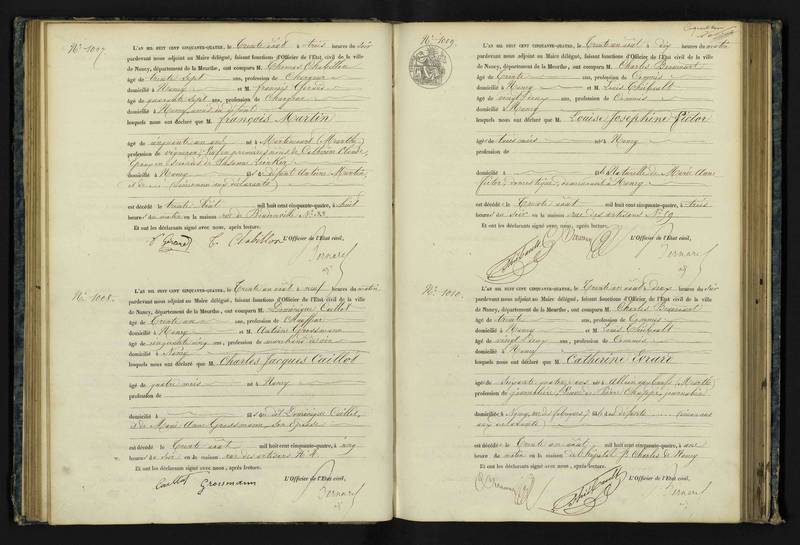 N° 1007.
L'AN MIL HUIT CENT CINQUANTE-QUATRE, le trente août à trois heures du soir
pardevant nous adjoint au Maire délégué, faisant fonctions d'Officier de l'Etat civil de la ville
de Nancy, département de la Meurthe, ont comparu M. Thomas Chabillon
âgé de trente sept ans, profession de Chargeur
domicilié à Nancy et M. François Gerard
âgé de quarante sept ans, profession de Chargeur
domicilié à Nancy
lesquels nous ont déclaré que M. François Martin
âgé de cinquante un ans né à (Meurthe)
profession de vigneron,
domicilié à Nancy fils de défunt Antoine Martin,
et de
est décédé le trente août mil huit cent cinquante-quatre, à huit
heures du matin en la maison rue de N° 33
Et ont les déclarants signé avec nous, après lecture.
L'Officier de l'Etat civil,
f. Gerard T. Chabillon
Bernard
N° 1008.
L'AN MIL HUIT CENT CINQUANTE-QUATRE, le trente un août à neuf heures du matin
pardevant nous adjoint au Maire délégué, faisant fonctions d'Officier de l'Etat civil de la ville
de Nancy, département de la Meurthe, ont comparu M. Dominique Caillot
âgé de trente un ans, profession de Chauffeur
domicilié à Nancy et M. Antoine Grossmann
âgé de cinquante cinq ans, profession de
domicilié à Nancy
lesquels nous ont déclaré que M. Charles Jacques Caillot
âgé de quatre mois né à Nancy
profession de
domicilié à fils dudit Dominique Caillot,
et de Marie Anne Grossmann, son épouse
est décédé le trente août mil huit cent cinquante-quatre, à cinq
heures du soir en la maison rue des artisans N°
Et ont les déclarants signé avec nous, après lecture.
L'Officier de l'Etat civil,
Caillot Grossmann
Bernard
N° 1009.
L'AN MIL HUIT CENT CINQUANTE-QUATRE, le trente un août à dix heures du matin
pardevant nous adjoint au Maire délégué, faisant fonctions d'Officier de l'Etat civil de la ville
de Nancy, département de la Meurthe, ont comparu M. Charles
âgé de trente ans, profession de Commis
domicilié à Nancy et M. Louis Thiébault
âgé de vingt cinq ans, profession de Commis
domicilié à Nancy
lesquels nous ont déclaré que M. Louise Josephine Pidor
âgé de trois mois né à Nancy
profession de
domicilié à fille naturelle de Marie Anne
Pidor, domestique, demeurant à Nancy
est décédé le trente août mil huit cent cinquante-quatre, à trois
heures du soir en la maison rue des artisans N° 59
Et ont les déclarants signé avec nous, après lecture.
L'Officier de l'Etat civil,
Thiébault
Bernard
N° 1010.
L'AN MIL HUIT CENT CINQUANTE-QUATRE, le trente un août à deux heures du soir
pardevant nous adjoint au Maire délégué, faisant fonctions d'Officier de l'Etat civil de la ville
de Nancy, département de la Meurthe, ont comparu M. Charles
âgé de trente ans, profession de Commis
domicilié à Nancy et M. Louis Thiébault
âgé de vingt cinq ans, profession de Commis
domicilié à Nancy
lesquels nous ont déclaré que M. Catherine Evrard
âgé de soixante quatre ans né à (Meurthe)
profession de journalière, Veuve de Pierre Chappé, journalier
domiciliée à Nancy, rue des fabriques, fille
aux déclarants
est décédé le trente un août mil huit cent cinquante-quatre, à une
heure du matin en la maison de l'hôpital St Charles de Nancy
Et ont les déclarants signé avec nous, après lecture.
L'Officier de l'Etat civil,
Thiébault
Bernard